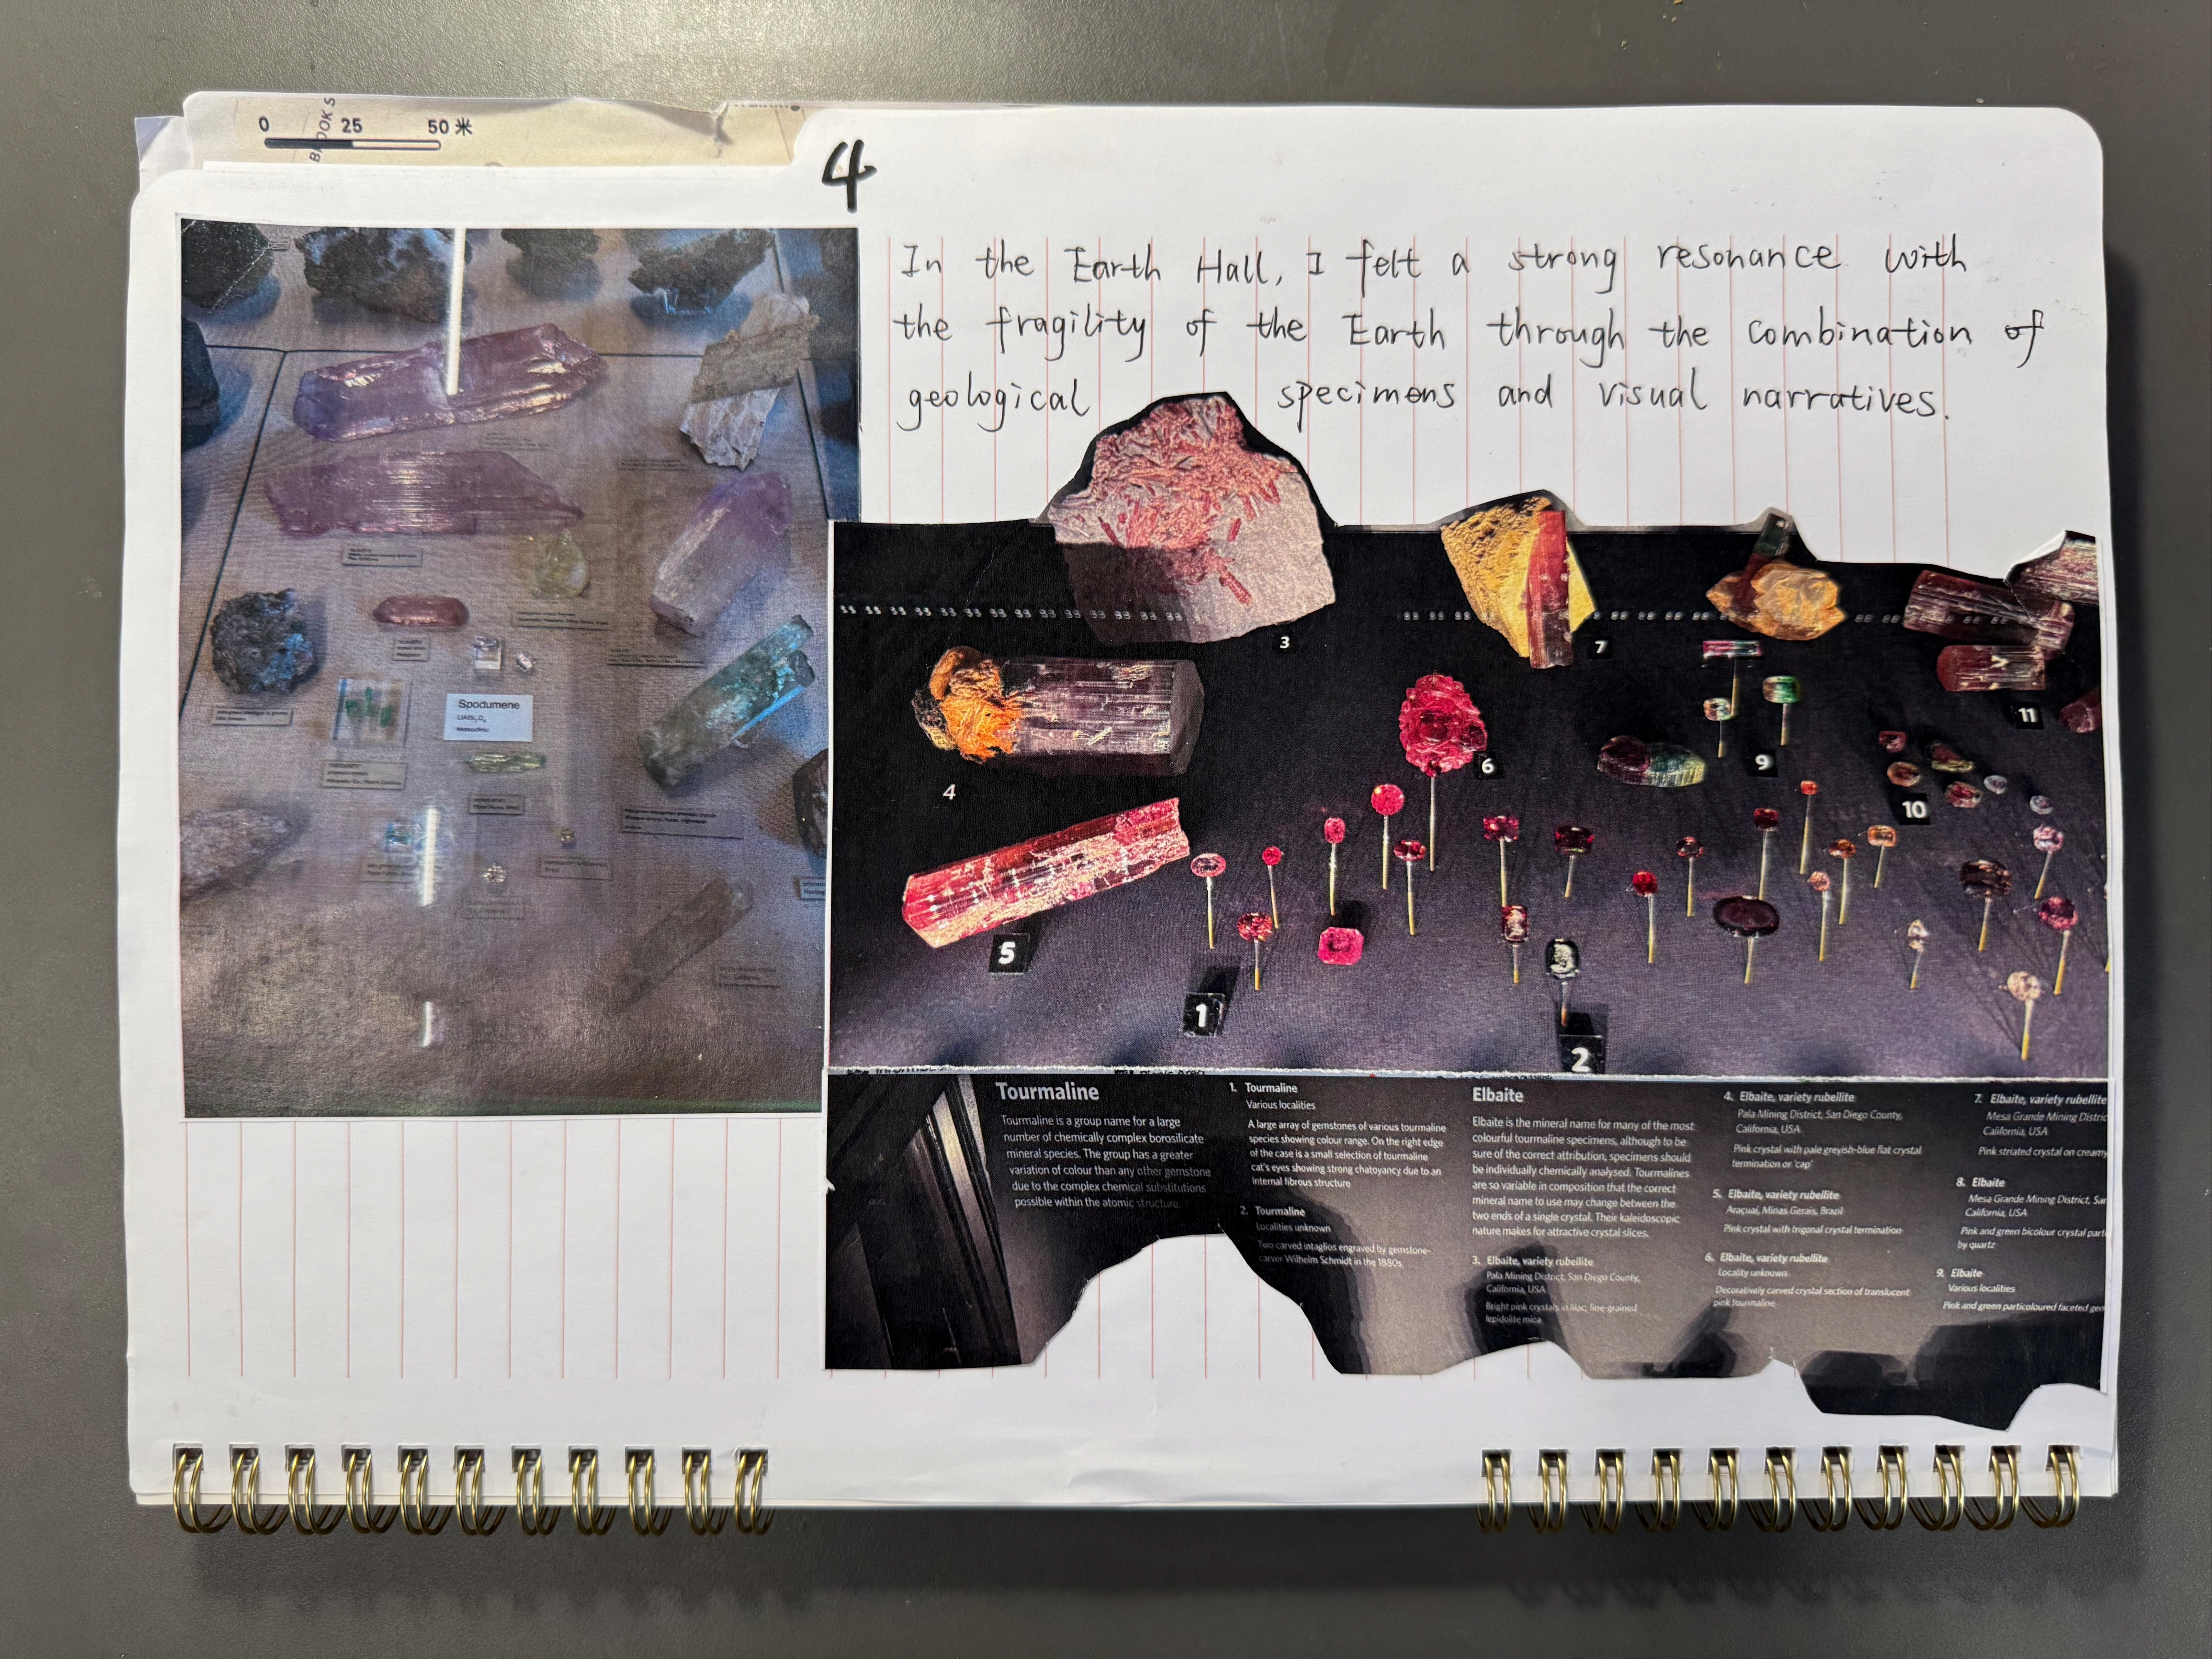 0 25 50 米
4
In the Earth Hall, I felt a strong resonance with
the fragility of the Earth through the combination of
geological specimens and visual narratives.
Spodumene
Monoclinic
3
7
4
6
9
11
10
5
1
2
Tourmaline
Tourmaline is a group name for a large
number of chemically complex borosilicate
mineral species. The group has a greater
variation of colour than any other gemstone
due to the complex chemical substitutions
possible within the atomic structure.
1. Tourmaline
Various localities
A large array of gemstones of various tourmaline
species showing colour range. On the right edge
of the case is a small selection of tourmaline
cat's eyes showing strong chatoyancy due to an
internal fibrous structure
2. Tourmaline
Localities unknown
Two carved intaglios engraved by gemstone-
carver Wilhelm Schmidt in the 1880s
Elbaite
Elbaite is the mineral name for many of the most
colourful tourmaline specimens, although to be
sure of the correct attribution, specimens should
be individually chemically analysed. Tourmalines
are so variable in composition that the correct
mineral name to use may change between the
two ends of a single crystal. Their kaleidoscopic
nature makes for attractive crystal slices.
3. Elbaite, variety rubellite
Pala Mining District, San Diego County,
California, USA
Bright pink crystals in lilac, fine-grained
lepidolite mica
4. Elbaite, variety rubellite
Pala Mining District, San Diego County,
California, USA
Pink crystal with pale greyish-blue flat crystal
termination or 'cap'
5. Elbaite, variety rubellite
Araçuaí, Minas Gerais, Brazil
Pink crystal with trigonal crystal termination
6. Elbaite, variety rubellite
Locality unknown
Decoratively carved crystal section of translucent
pink tourmaline
7. Elbaite, variety rubellite
Mesa Grande Mining Distric
California, USA
Pink striated crystal on creamy
8. Elbaite
Mesa Grande Mining District, Sa
California, USA
Pink and green bicolour crystal part
by quartz
9. Elbaite
Various localities
Pink and green particoloured faceted ge